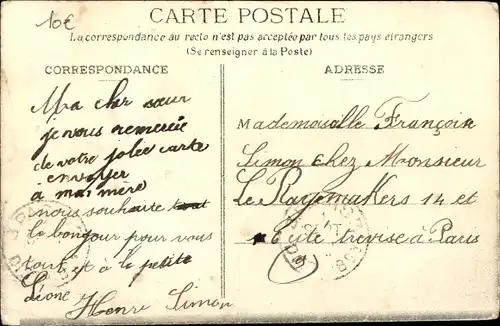 10€
CARTE POSTALE
La correspondance au recto n'est pas acceptée par tous les pays étrangers
(Se renseigner à la Poste)
CORRESPONDANCE
Ma cher sœur
je vous remercie
de votre jolee carte
envoyer
à ma mère
nous souhaite
le bonjour pour vous
tout et à la petite
Léone Henri Simon
ADRESSE
Mademoiselle Françoise
Simon chez Monsieur
Le Ragemakers 14 et
Cité trevise à Paris